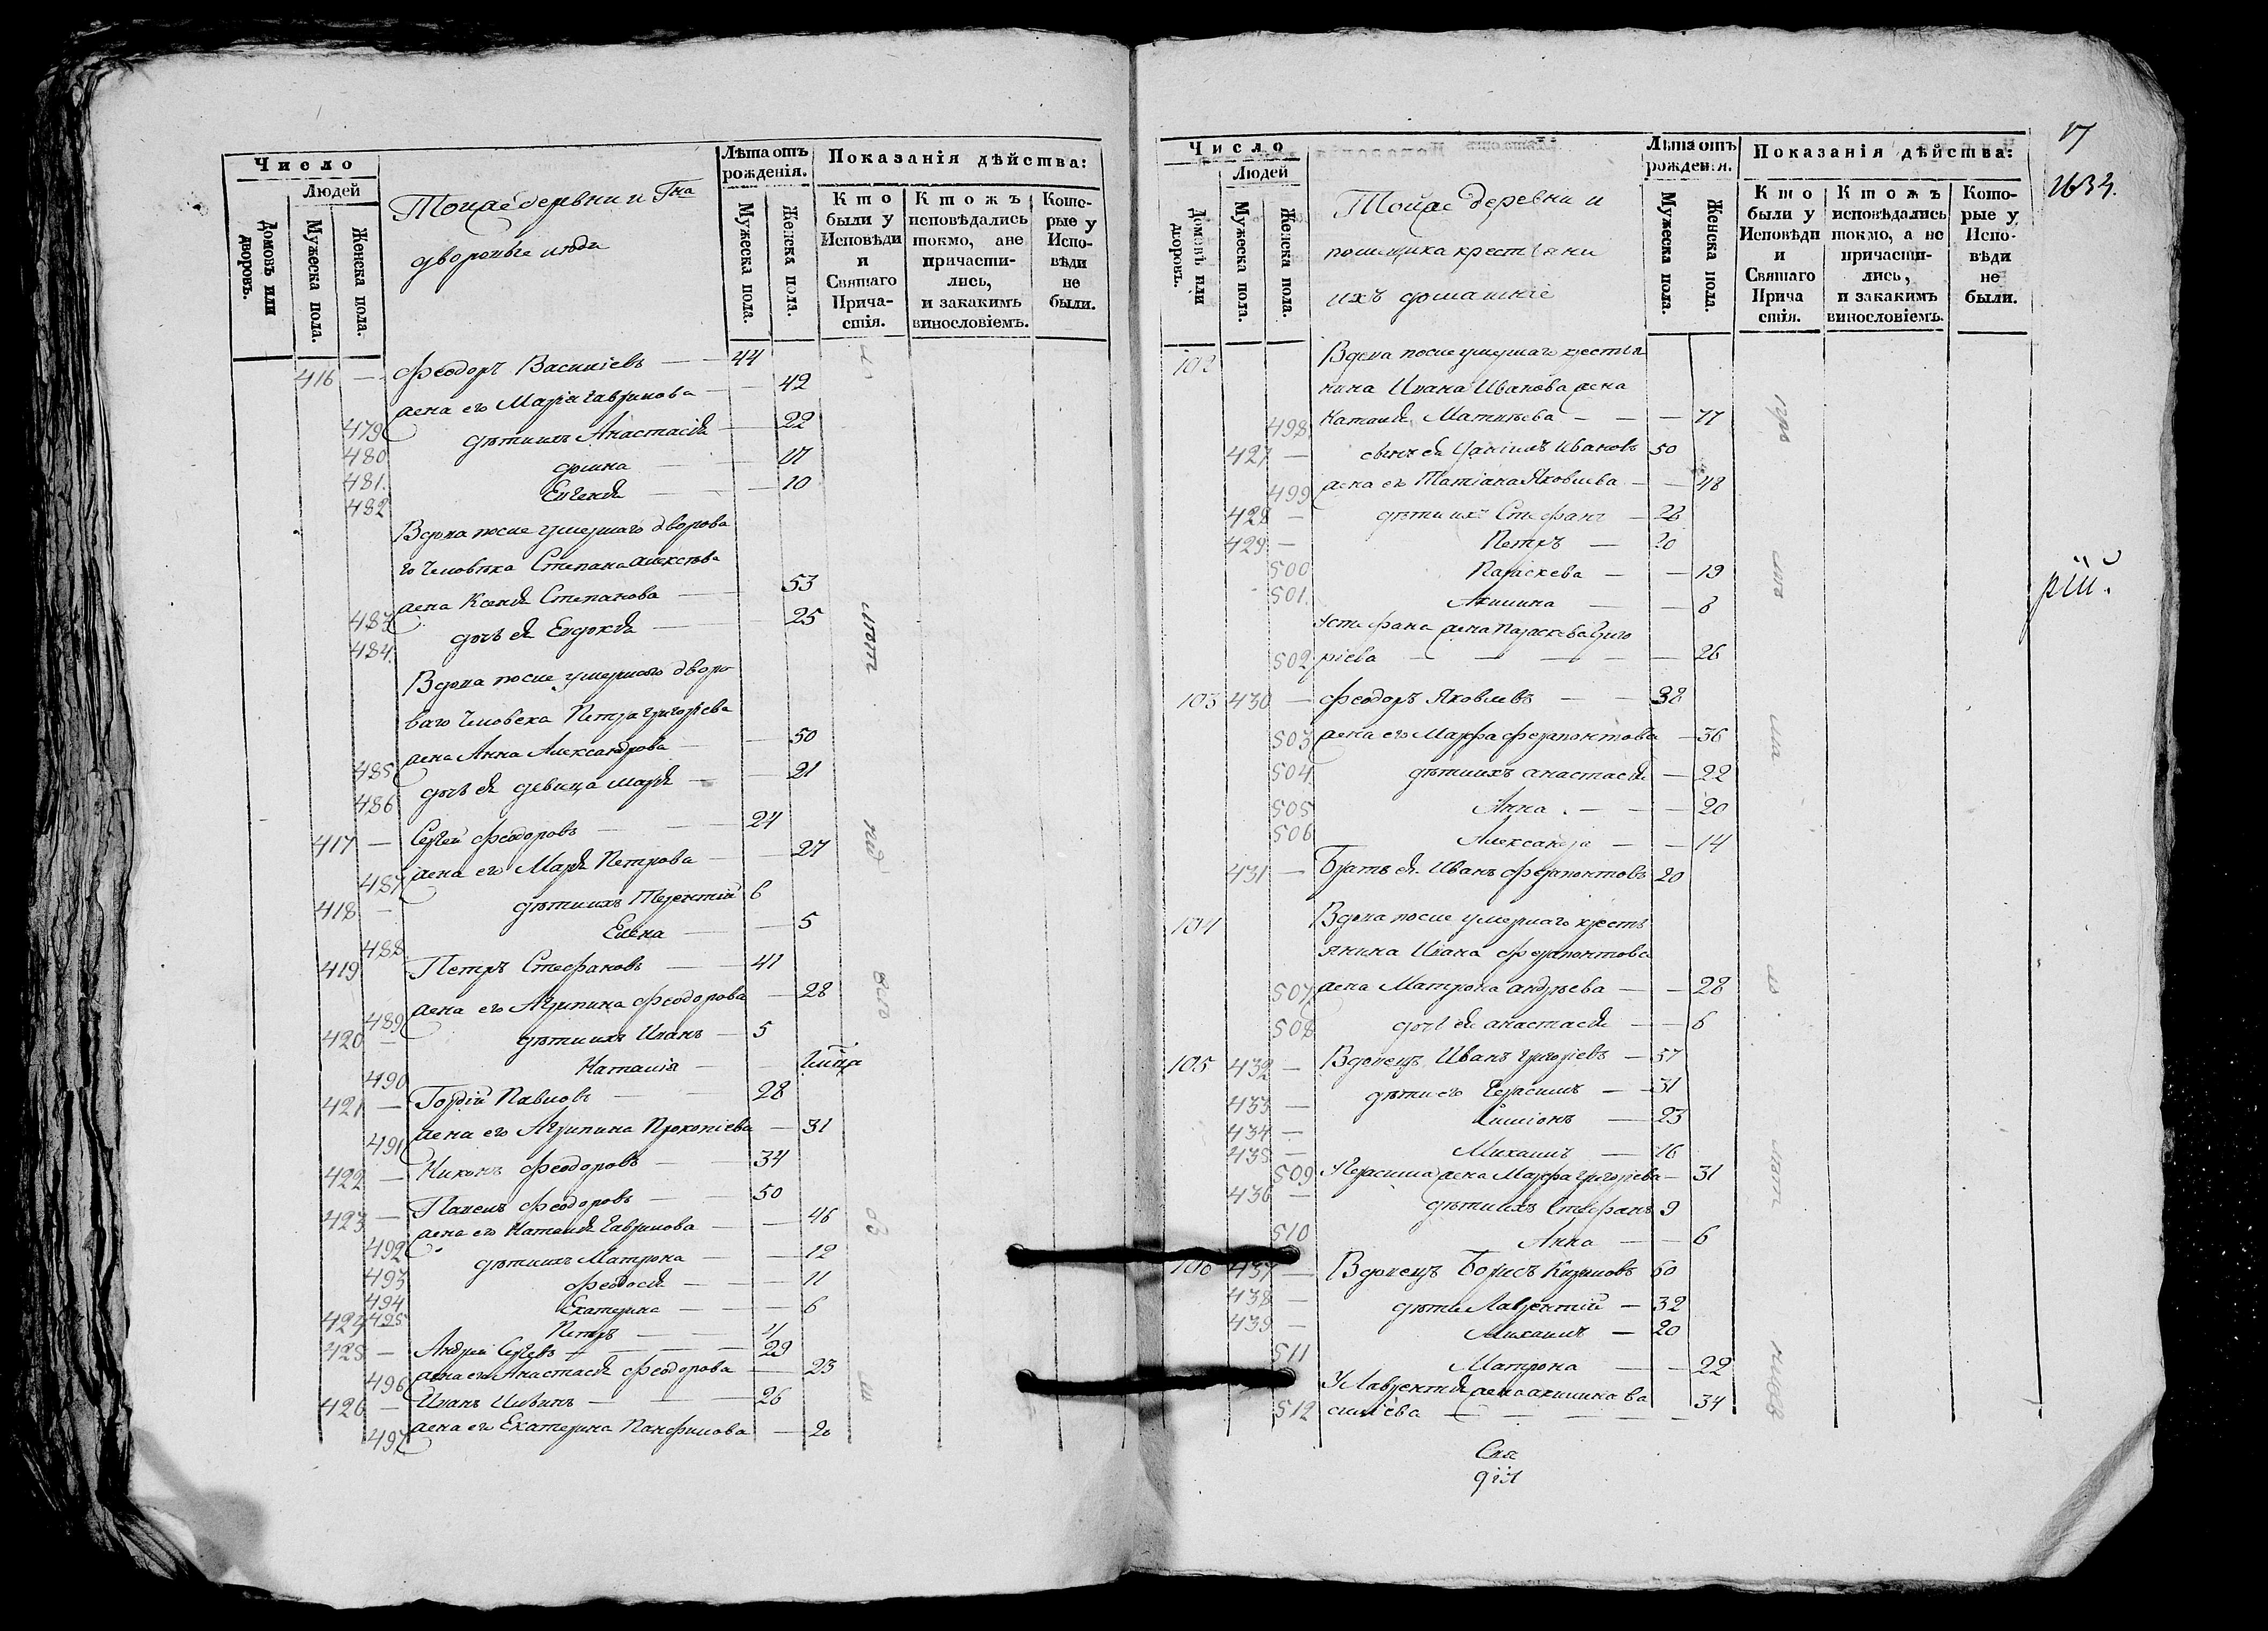 Число
Людей
Домовъ или дворовъ.
Мужеска пола
Женска пола.
Тойже деревни и Гна
дворовые люди
Лѣта отъ рожденія.
Мужеска пола.
Женска пола.
Показанія дѣйства:
Кто были у Исповѣди и Святаго Прича-стія.
Ктожъ исповѣдались токмо, ане причасти-лись, и закакимъ винословіемъ.
Кото-рые у Испо-вѣди не были.
416 — Феодоръ Василіевъ — — 44
479 жена его Марія Гаврилова — — 42
480 дѣти ихъ Анастасія — 22
481. Домна — — 17
482 Евгенія — — 10
Вдова после умершаго дворова
го человѣка Степана Алексѣева
483 жена Ксенія Степанова — 53
484. дочь ея Евдокія — 25
Вдова после умершаго дворо
ваго человека Петра Григоріева
485 жена Анна Александрова — — 50
486 дочь ея девица Марія — — 21
417 — Сергей Феодоровъ — — 24
487 жена его Марія Петрова — — 27
418 — дѣти ихъ Терентій 6
488 Елена — — 5
419 Петръ Стефановъ — — 41
489 жена его Агрипина Феодорова — 28
420 — дѣти ихъ Иванъ — 5
490 Наталія —
421 — Гордій Павловъ — — 28
491 жена его Агрипина Прокопіева — 31
422 — Никонъ Феодоровъ — — 34
423 — Павелъ Феодоровъ — — 50
492 жена его Наталія Гаврилова — — 46
493 дѣти ихъ Матрона — — 12
494 Феодосія — — 11
495 Екатерина — — 6
424 Петръ — —
425 — Андрей Сергѣевъ — 29
496 жена его Анастасія Феодорова — 23
426 — Иванъ Ильинъ — — 26
497 жена его Екатерина Панфилова — 20
17
1634.
Число
Людей
Домовъ или дворовъ.
Мужеска пола.
Женска пола.
Тойже деревни и
помещика крестьяни
ихъ домашніе
Лѣта отъ рожденія.
Мужеска пола.
Женска пола.
Показанія дѣйства:
Кто были у Исповѣди и Святаго Прича стія.
Ктожъ исповѣдались токмо, а не причасти-лись, и закакимъ винословіемъ.
Кото-рые у Испо-вѣди не были.
102 Вдова после умершаго крестья
нина Ивана Иванова жена
498. Наталія Матвѣева — — — 77
427 — сынъ ея Даніилъ Ивановъ 50
499 жена его Татіана Яковлева — — 48
428 — дѣти ихъ Стефанъ — 26
429 — Петръ — 20
500 Параскева — — 19
501. Акилина — — 8
У Стефана жена Параскева Григо
502 ріева — — — — — 26
103 430 — Феодоръ Яковлевъ — — 38
503 жена его Марфа Ферапонтова — 36
504 дѣти ихъ Анастасія — 22
505 Анна. — — — 20
506 Александра — — 14
431 — Братъ ея Иванъ Ферапонтовъ 20
104 Вдова после умершаго кресть
янина Ивана Ферапонтова
507 жена Матрона Андрѣева — — 28
508 дочь ея Анастасія — — 6
105 432 — Вдовецъ Иванъ Григоріевъ — 57
433 — дѣти его Герасимъ — 31
434 — Симіонъ — 23
435 — Михаилъ — 16
509 У Герасима жена Марфа Григоріева — 31
436 — дѣти ихъ Стефанъ 9
510 Анна — — 6
106 437 — Вдовецъ Борисъ Кириловъ 60
438 — дѣти Лаврентій — 32
439 — Михаилъ — 20
511 Матрона — — 22
У Лаврентія жена Акилина Ва
512 силіева — — — — 34